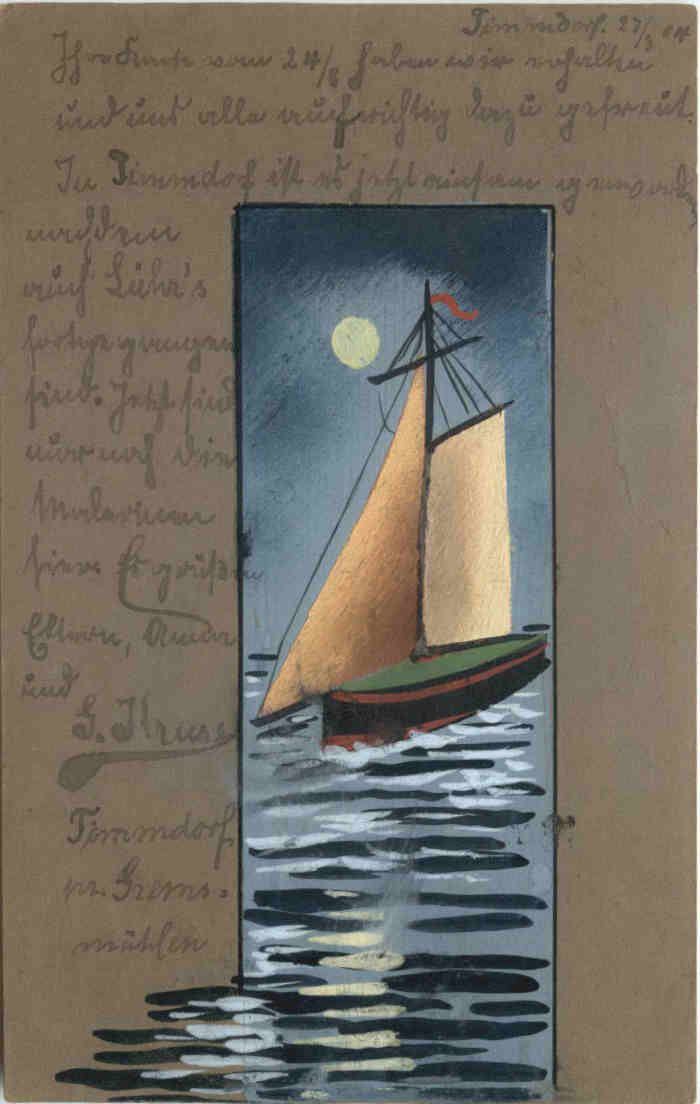 Timmdorf. 27/8 04
Ihre Karte vom 24/8 haben wir erhalten
und uns alle aufrichtig dazu gefreut.
In Timmdorf ist es jetzt einsam geword
nachdem
auch Lühr's
fortgegangen
sind. Jetzt sind
nur noch die
Malerinnen
hier. Es grüßen
Eltern, Anna
und
G. Kruse
Timmdorf,
pr. Grems-
mühlen